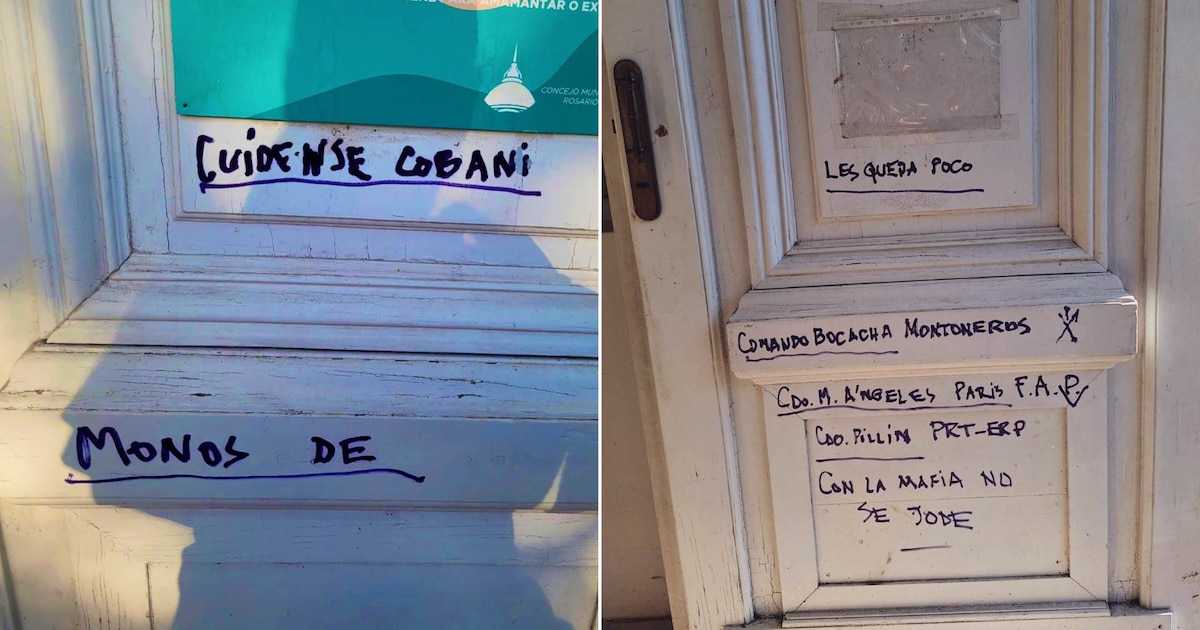 PARA AMAMANTAR O EX
CONCEJO MUN
ROSARIO
CUIDENSE COBANI
MONOS DE
LES QUEDA POCO
COMANDO BOCACHA MONTONEROS
CDO. M. ÁNGELES PARIS F.A.P.
CDO. PILLIN PRT-ERP
CON LA MAFIA NO
SE JODE